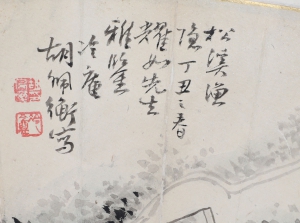 松溪渔
隐丁丑之春
耀如先生
雅鉴
冷庵
胡佩衡写